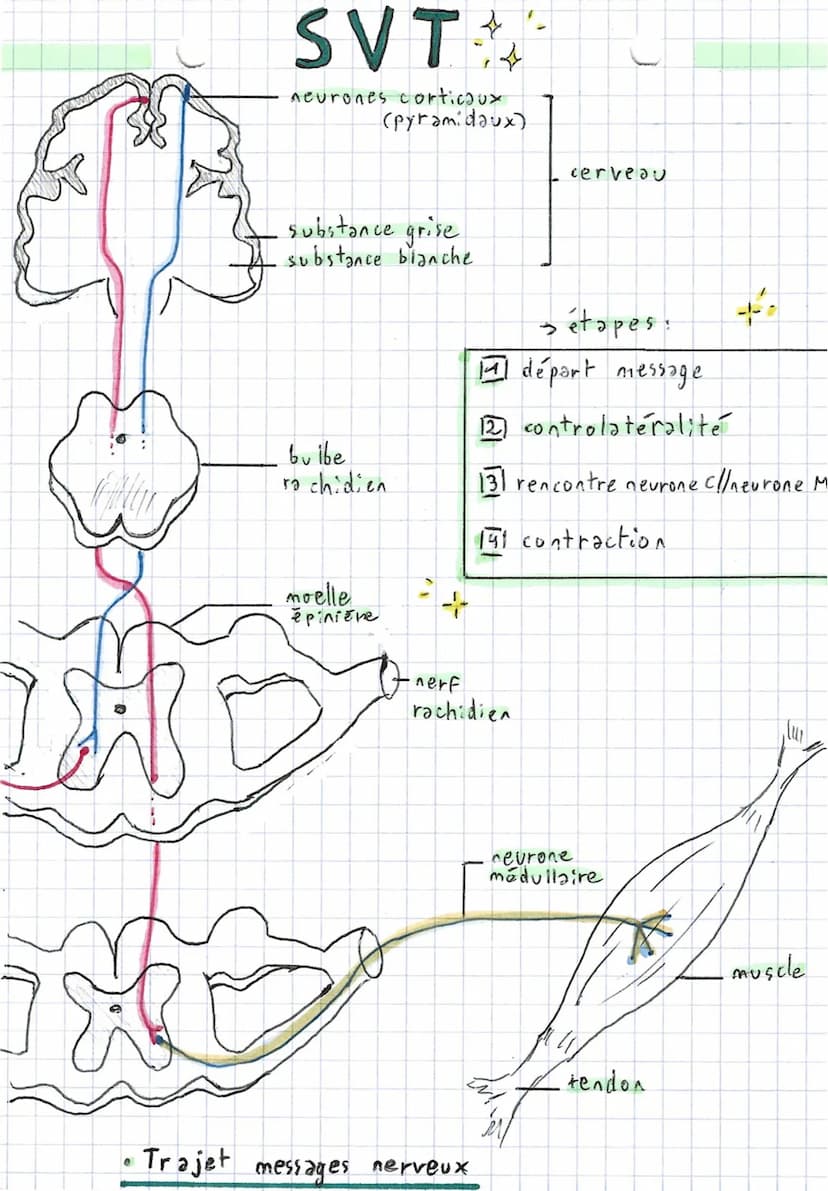 SVT
neurones corticaux
(pyramidaux)
cerveau
substance grise
substance blanche
→ étapes :
1 départ message
2 controlatéralité
3 rencontre neurone C//neurone M
4 contraction
bulbe
rachidien
moelle
épinière
nerf
rachidien
neurone
médullaire
muscle
tendon
• Trajet messages nerveux